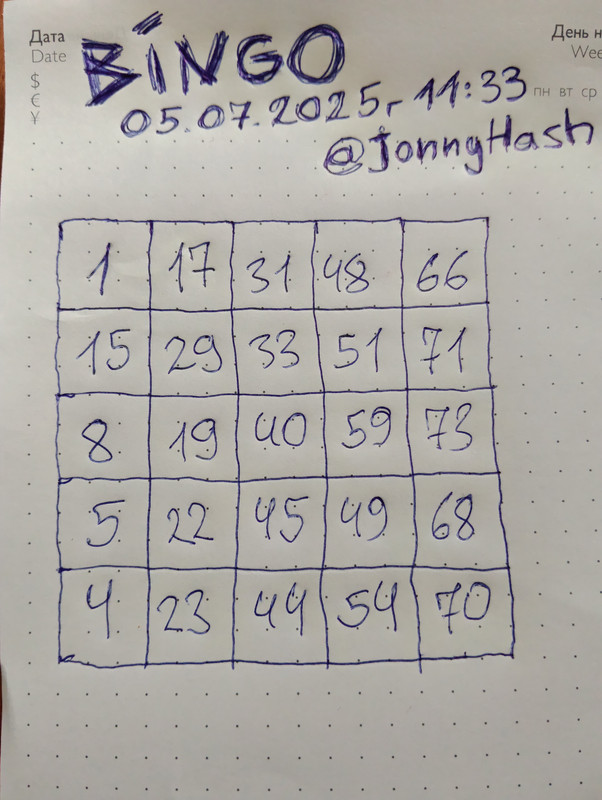 Дата
Date
$
€
¥
День н
Wee
пн вт ср
BiNGO
05.07.2025г 11:33
@JonnyHash
1 17 31 48 66
15 29 33 51 71
8 19 40 59 73
5 22 45 49 68
4 23 44 54 70